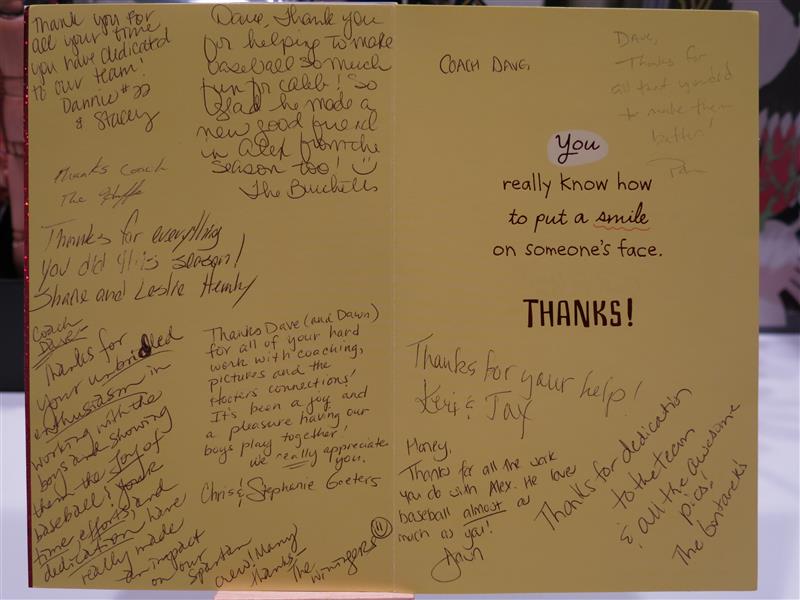 Thank you for
all your time
you have dedicated
to our team!
Dannie #22
& Stacey
Dave, Thank you
for helping to make
baseball so much
fun for Caleb! So
glad he made a
new good friend
in Alex from the
season too!
The Burchells
Thanks Coach
The
Thanks for everything
You did this season!
Shane and Leslie Henly
Coach
Dave-
Thanks for
your unbridled
enthusiasm in
working with the
boys and showing
them the joy of
baseball! Your
time, efforts and
dedication have
really made
an impact
on our
Spartan
crew! Many
thanks-
The Winingers
11
Thanks Dave (and Dawn)
for all of your hard
work with coaching,
pictures and the
Hooters connections!
It's been a joy and
a pleasure having our
boys play together!
We really appreciate
you.
Chris & Stephanie Goeters
COACH DAVE,
Dave,
Thanks for
all that you did
to make them
better!
You
really know how
to put a smile
on someone's face.
THANKS!
Thanks for your help!
Keri & Jax
Honey,
Thanks for all the work
you do with Alex. He loves
baseball almost as
much as you!
Dawn
Thanks for dedication
to the team
& all the awesome
pics!
The Gontareks